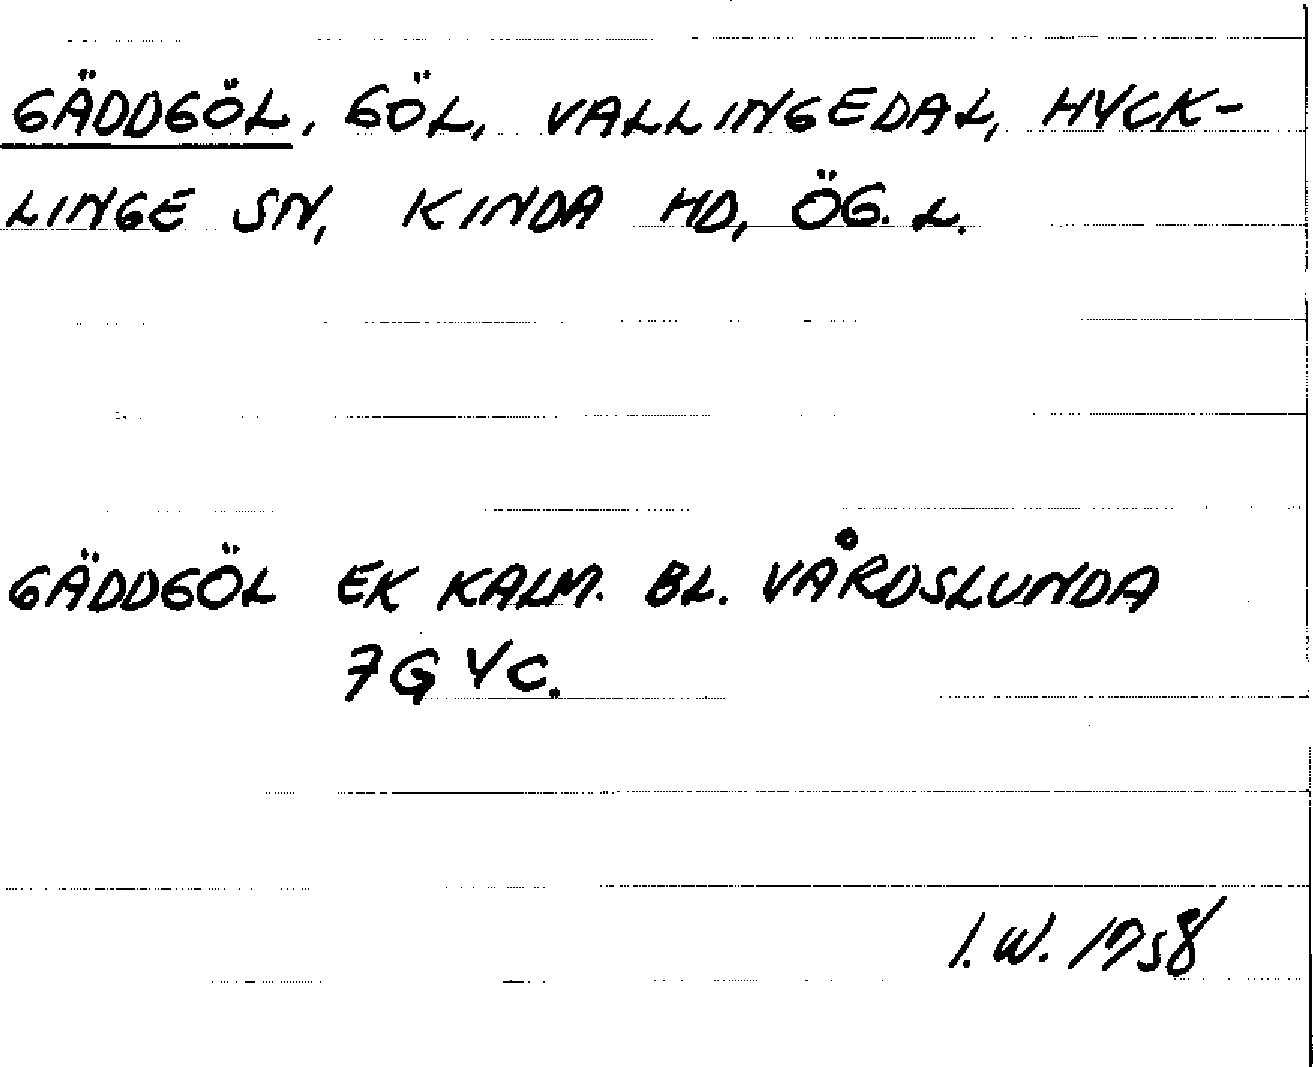 GÄDDGÖL, GÖL, VALLINGEDAL, HYCK-
LINGE SN, KINDA HD, ÖG. L.
GÄDDGÖL EK KALM. BL. VÅRDSLUNDA
7G YC.
I.W. 1958